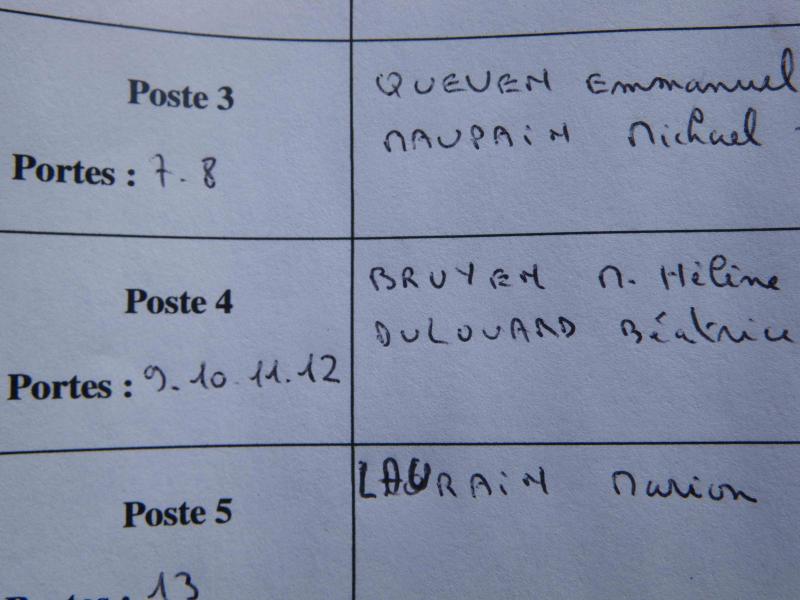 Poste 3
Portes : 7.8
QUEVEN Emmanuel
MAUPAIN Michael
Poste 4
Portes : 9.10.11.12
BRUYEN M. Hélène
DULOUARD Béatrice
Poste 5
Portes : 13
LAURAIN Marion